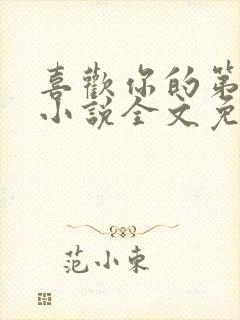 喜歡你的第
小說全文免
范小東